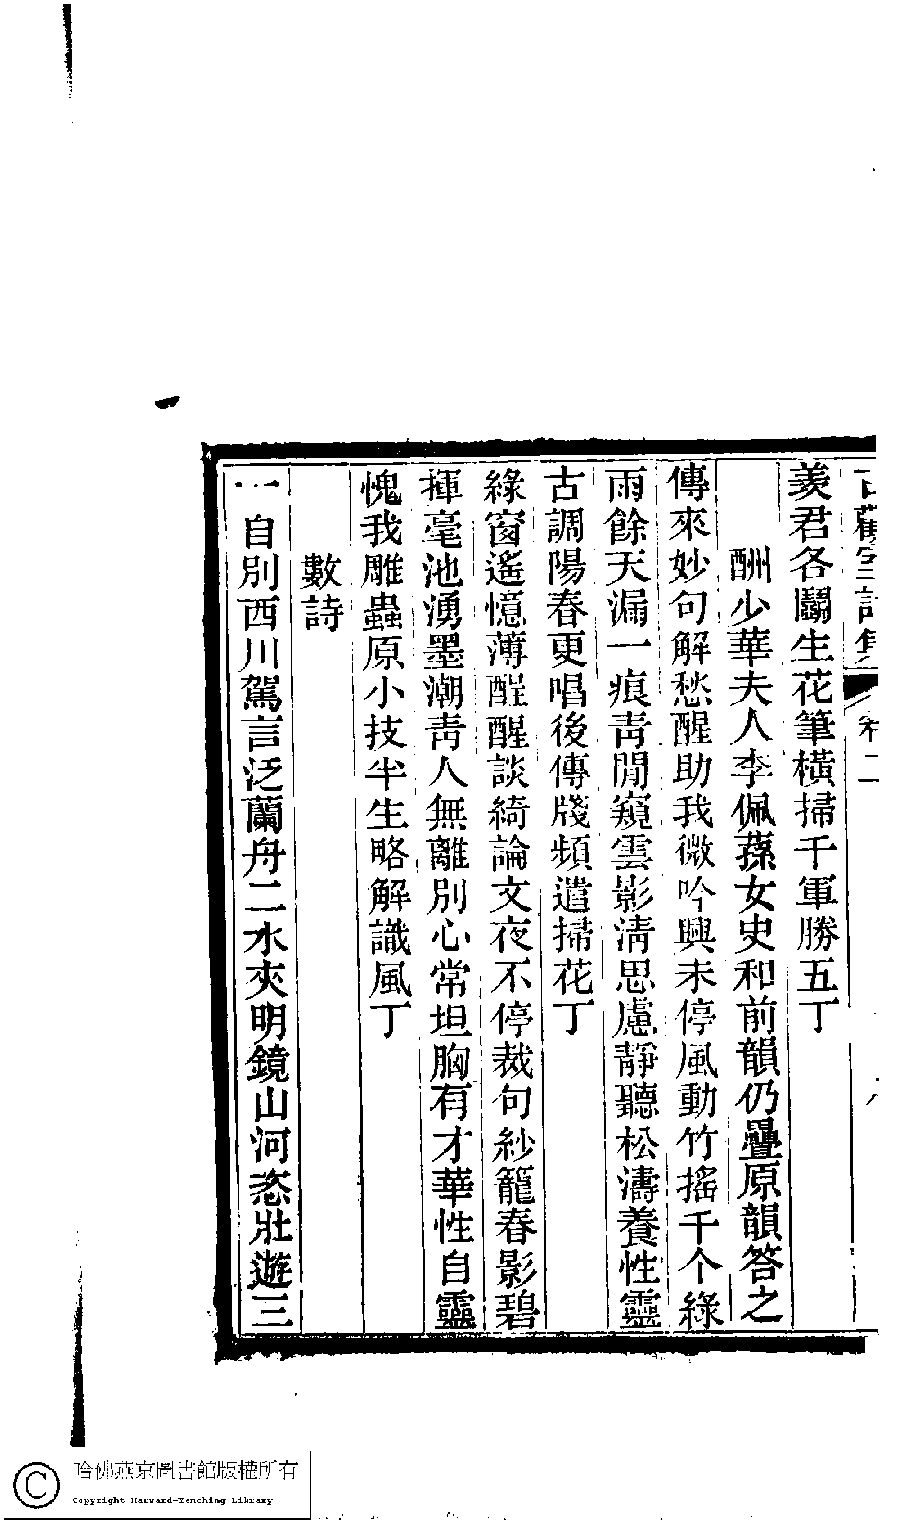 卷二
羨君各鬭生花筆橫掃千軍勝五丁
酬少華夫人李佩蓀女史和前韻仍疊原韻答之
傳來妙句解愁醒助我微吟興未停風動竹搖千个綠
雨餘天漏一痕青閒窺雲影清思慮靜聽松濤養性靈
古調陽春更唱後傳牋頻遣掃花丁
綠窗遙憶薄醒醒談綺論文夜不停裁句紗籠春影碧
揮毫池湧墨潮青人無離別心常坦胸有才華性自靈
愧我雕蟲原小技半生略解識風丁
數詩
一自別西川駕言泛蘭舟二水夾明鏡山河恣壯遊三
哈佛燕京圖書館版權所有
Copyright Harvard-Yenching Library